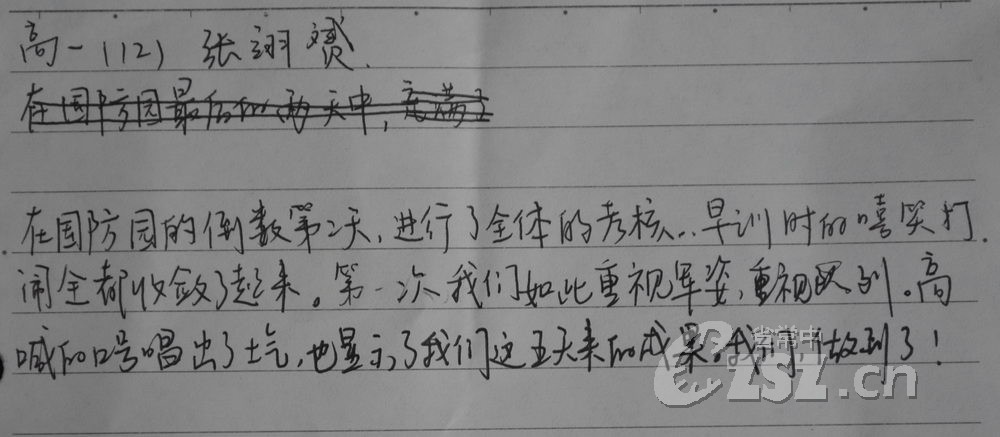 高一(12) 张翊赟.
在国防园最后的两天中,充满了
在国防园的倒数第2天,进行了全体的考核..早训时的嘻笑打
闹全都收敛了起来。第一次我们如此重视军姿,重视队列。高
喊的口号唱出了士气,也显示了我们这五天来的成果。我们做到了!
省常中
CZSZ.cn